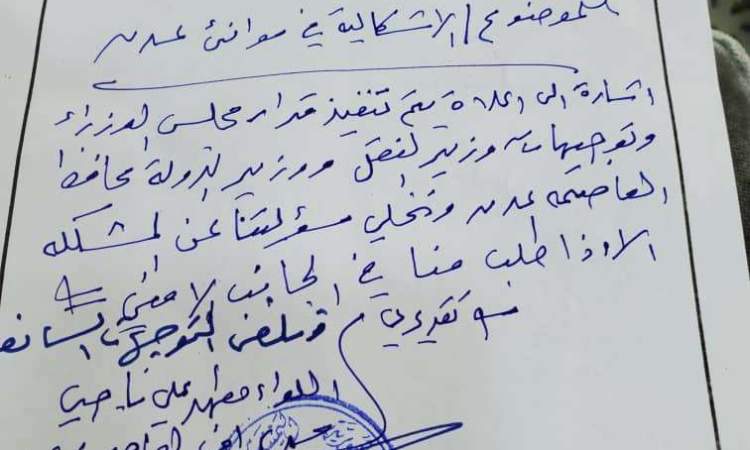 الموضوع/ الاشكالية في موانئ عدن
اشارة الى اعلاه يتم تنفيذ قرار مجلس الوزراء
وتوجيهات وزير النقل ووزير الدولة محافظ
العاصمة عدن ونخلي مسؤليتنا عن المشكله
الا اذا طلب منا في الجانب الامني
مع تقديري
وتلغى التوجيهات السابقه
اللواء مطهر علي ناجي